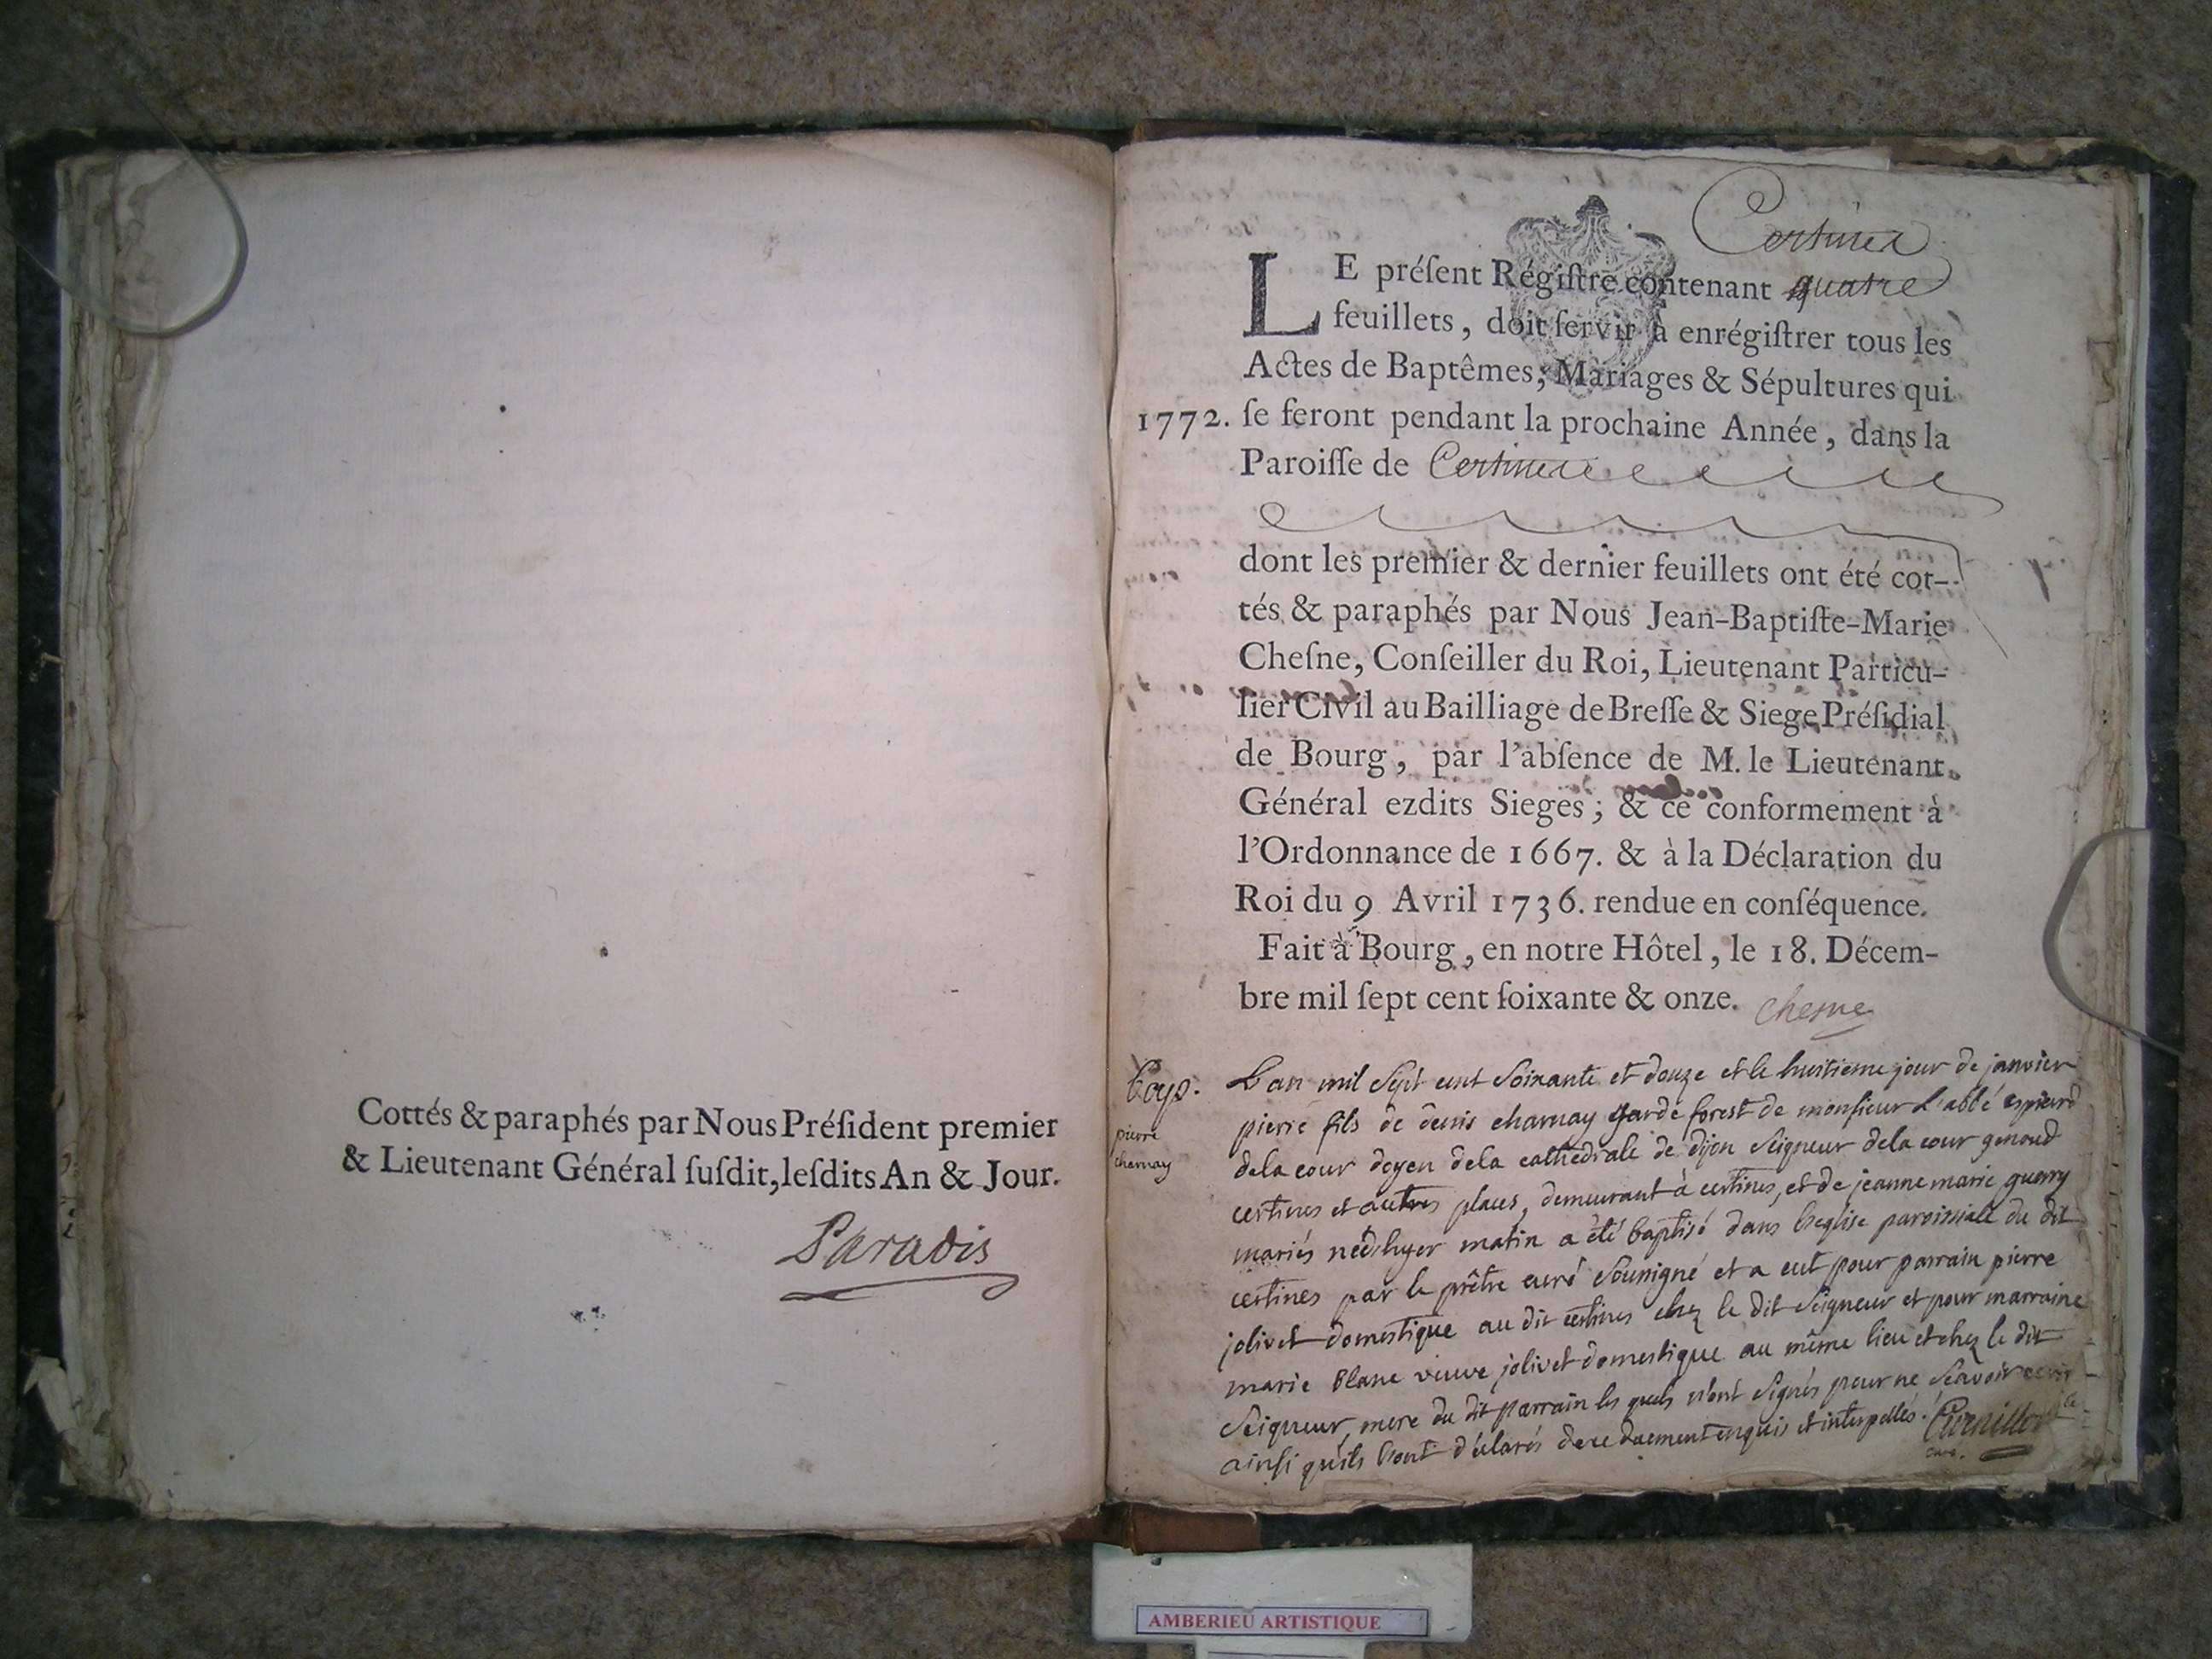 Cottés & paraphés par Nous Préſident premier
& Lieutenant Général ſuſdit, leſdits An & Jour.
Paradis
Certines
LE préſent Régiſtre contenant quatre
feuillets, doit ſervir à enrégiſtrer tous les
Actes de Baptêmes, Mariages & Sépultures qui
1772. ſe feront pendant la prochaine Année, dans la
Paroiſſe de Certines
dont les premier & dernier feuillets ont été cot-
tés & paraphés par Nous Jean-Baptiſte-Marie
Cheſne, Conſeiller du Roi, Lieutenant Particu-
lier Civil au Bailliage de Breſſe & Siege Préſidial
de Bourg, par l'abſence de M. le Lieutenant
Général ezdits Sieges; & ce conformement à
l'Ordonnance de 1667. & à la Déclaration du
Roi du 9 Avril 1736. rendue en conſéquence.
Fait à Bourg, en notre Hôtel, le 18. Décem-
bre mil ſept cent ſoixante & onze. Chesne
Bap.
pierre
charnay
L'an mil sept cent soixante et douze et le huitieme jour de janvier
pierre fils de denis charnay garde forest de monsieur l'abbé espiard
dela cour doyen dela cathédrale de dijon seigneur dela cour genoud
certines et autres places, demeurant à certines, et de jeanne marie guerry
mariés né d'hyer matin a été baptisé dans l'eglise paroissiale du dit
certines par le prêtre curé soussigné et a eut pour parrain pierre
jolivet domestique au dit certines chez le dit seigneur et pour marraine
marie blanc veuve jolivet domestique au même lieu et chez le dit
seigneur, mere du dit parrain les quels n'ont signés pour ne sçavoir ecrir
ainsi qu'ils l'ont déclarés de ce duement enquis et interpellés.
curé.
AMBERIEU ARTISTIQUE